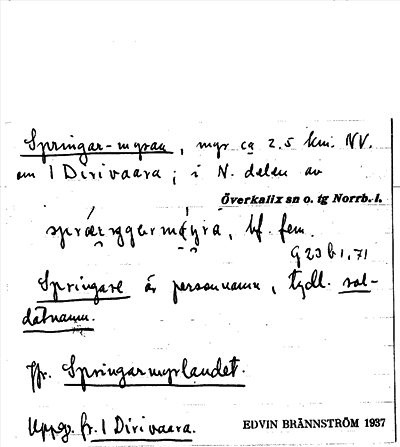 Springar-myran, myr ca 2.5 km. NV.
om 1 Dirivaara; i N. delen av
Överkalix sn o. tg Norrb. l.
bf. fem.
G23b1,71
Springare är personnamn, tydl. sol-
datnamn.
Jfr. Springarmyrlandet.
Uppg. fr. 1 Dirivaara.
EDVIN BRÄNNSTRÖM 1937